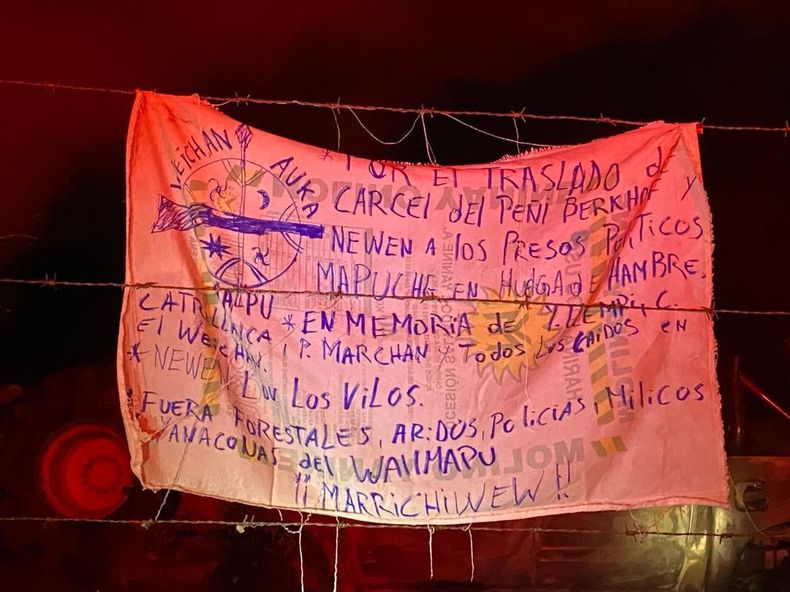 WEICHAN AUKA
MAPU
* POR EL TRASLADO de
CARCEl del PEÑI BERKHOF Y
NEWEN A los PRESOS Políticos
MAPUCHE EN HUElGA dE HAMBRE.
* EN MEMORIA de Y. LLEMPI, C.
CATRILLANCA, P. MARCHAN Y TODOS LOS CAIDOS EN
El WEICHAN.
* NEWEN LOV LOS VILOS.
FUERA FORESTALES, ARIDOS, POliCiAS, MiliCOS
Y YANACONAS dEl WALLMAPU
¡¡ MARRICHIWEW !!
MOLINO